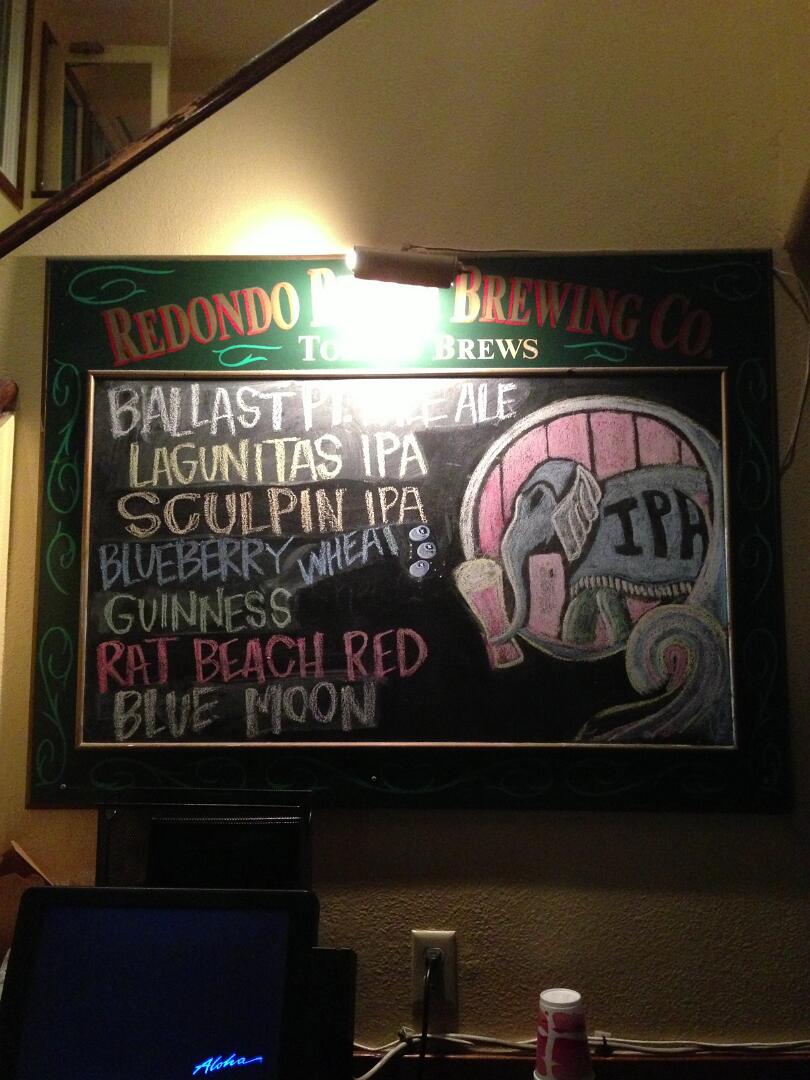 REDONDO BREWING CO.
BREWS
BALLAST PT. ALE
LAGUNITAS IPA
SCULPIN IPA
BLUEBERRY WHEAT
GUINNESS
RAT BEACH RED
BLUE MOON
IPA
Aloha